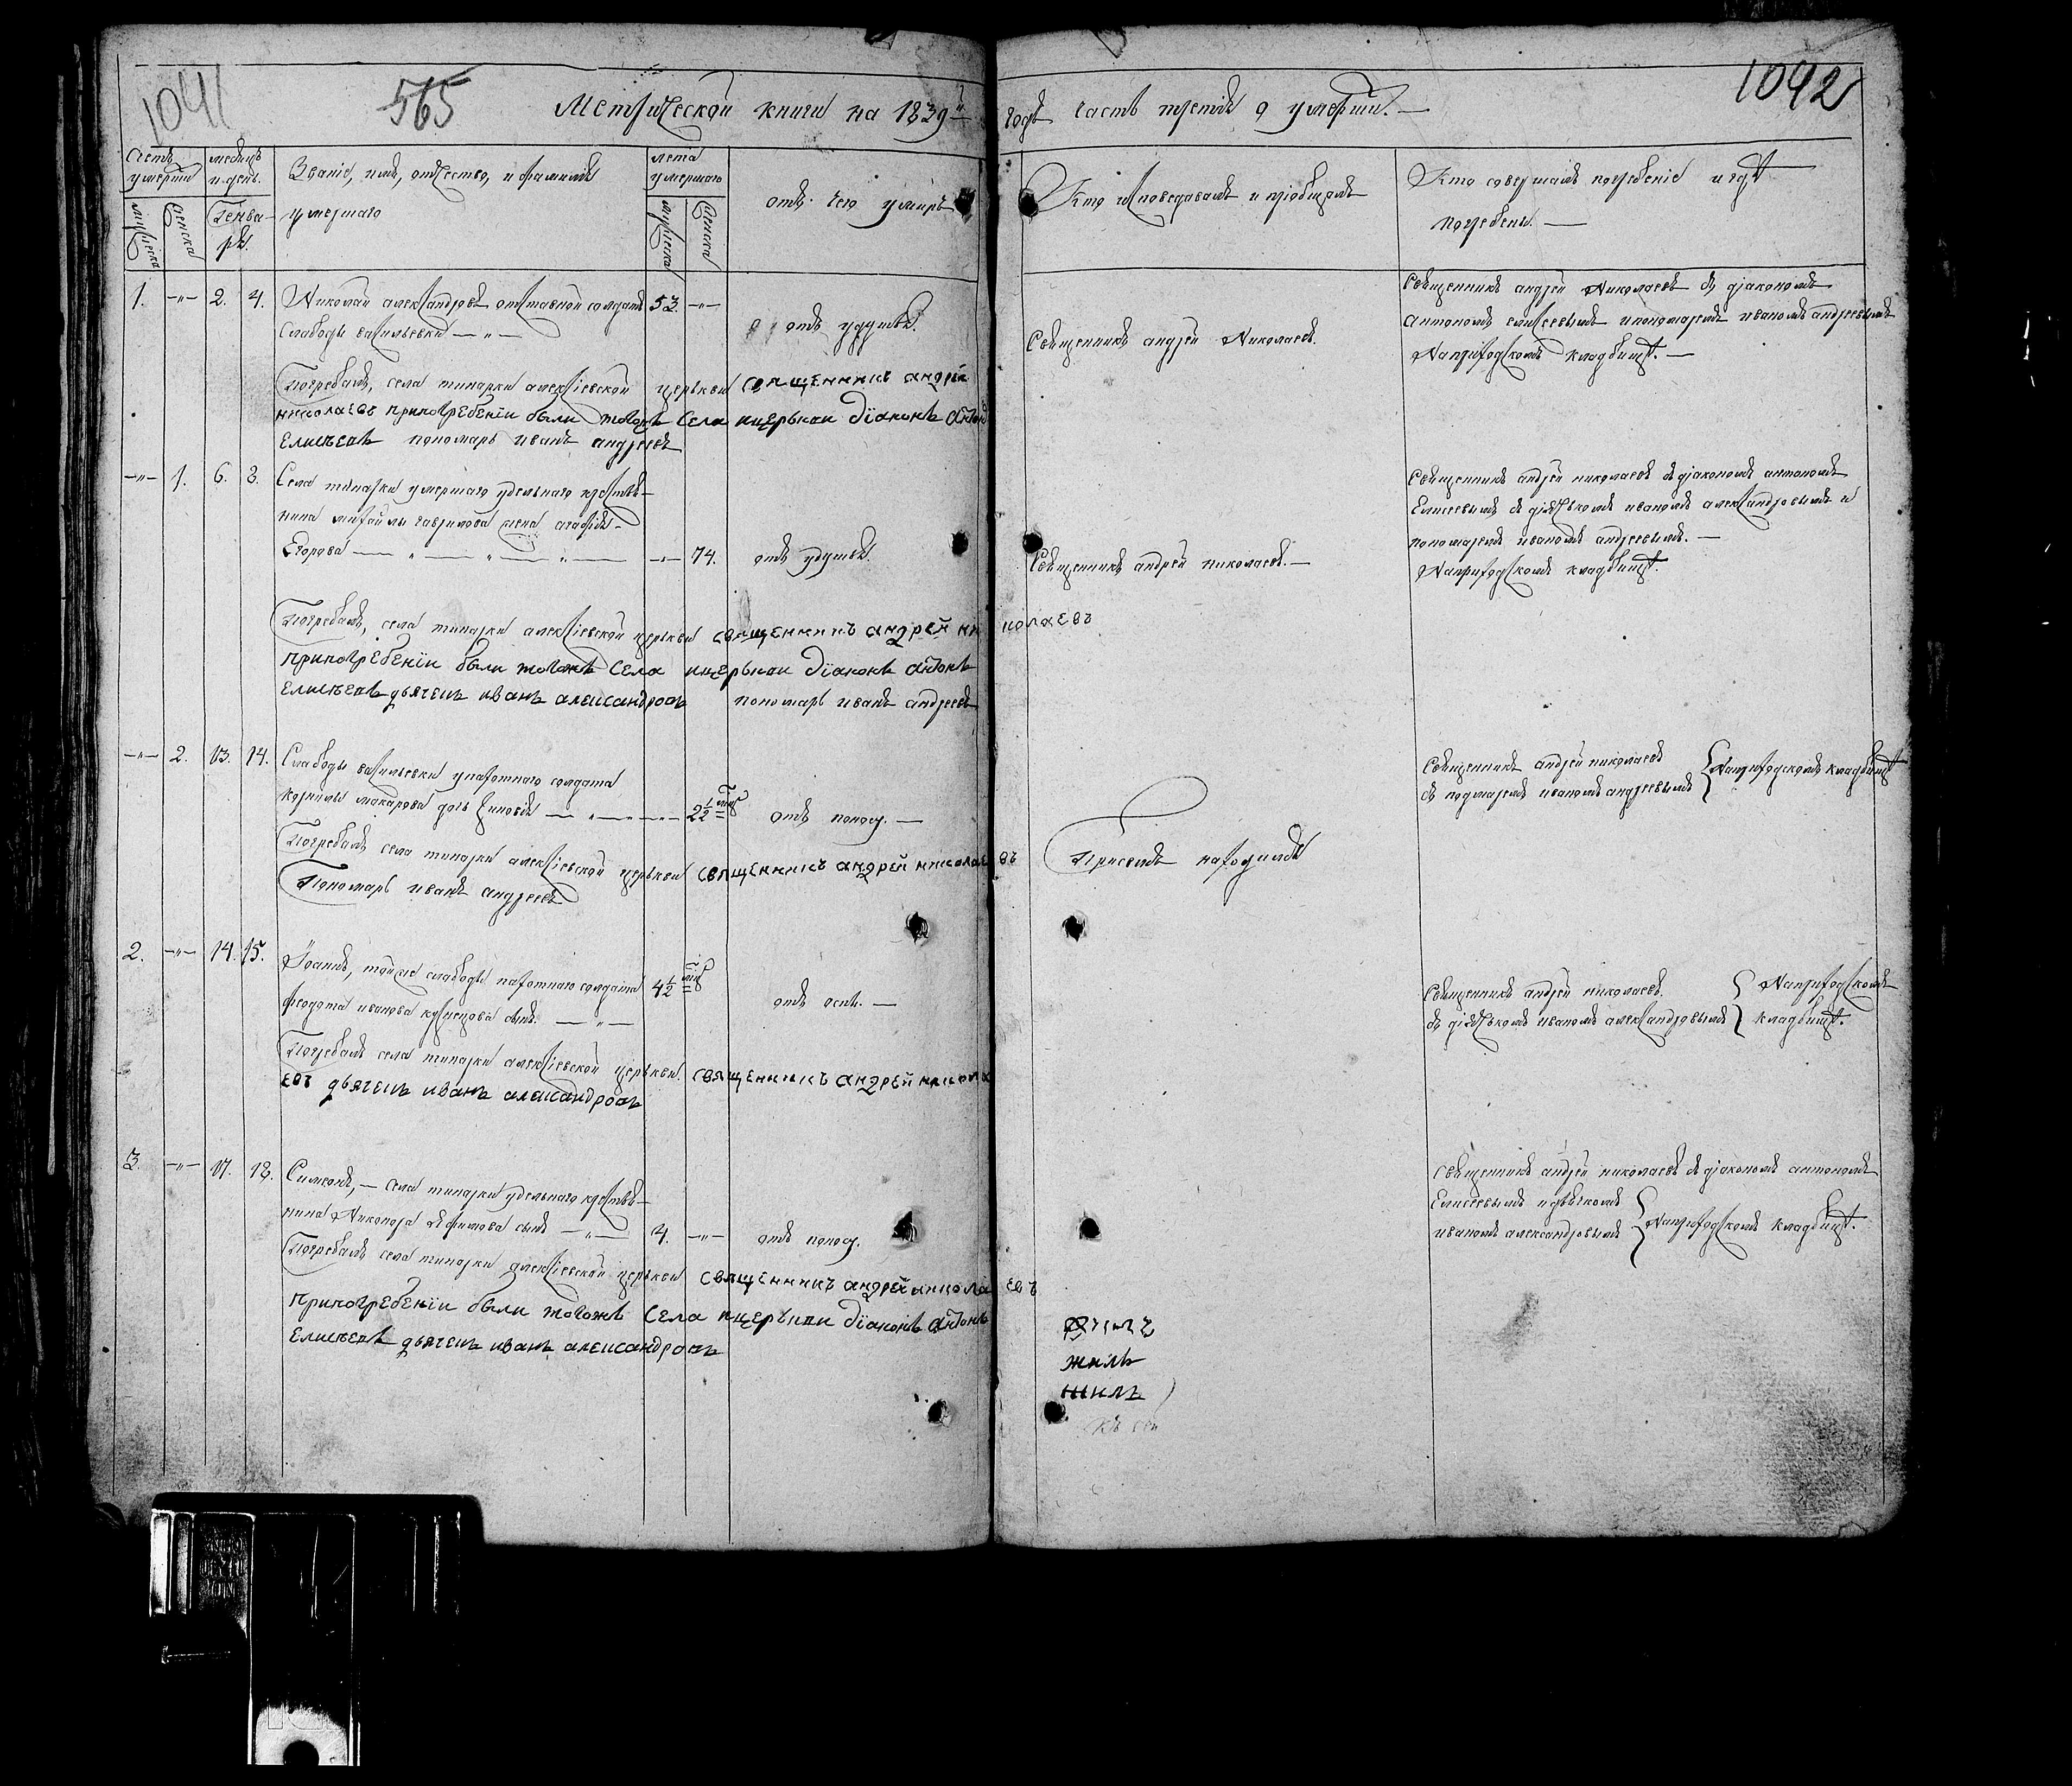 1041
565
Метрической книги на 1839й
годъ часть третія о умершихъ.
1042
Счетъ умершихъ
мужеска
женска
месяцъ и день.
Генва-
ря.
Званіе, имя, отчество, и фамилія
умершаго
лета умершаго
мужеска
женска
отъ чего умиръ
Кто исповедавалъ и пріобщалъ
Кто совершалъ погребеніе и гдѣ
погребены.
1. —„— 2. 4. Николай александровъ отставной солдатъ 53. —„—
слабоды васильевки —„—
отъ удушья.
Священникъ андрей Николаевъ.
Священникъ андрей Николаевъ съ діакономъ
антономъ елисеевымъ и пономаремъ иваномъ андреевымъ
Наприходскомъ кладбищѣ.—
Погребалъ, села тинарки алексіевской церькви священникъ андрей
николаевъ при погребеніи были тогожъ села и церькви діаконъ антонъ
Елисѣевъ пономарь иванъ андреевъ
—„— 1. 6. 8. Села тинарки умершаго удельнаго крестья-
нина михайлы гаврилова жена агафія
Егорова —„—„—„— —„— 74. отъ удушья.
Священникъ андрей николаевъ.—
Священникъ андрей николаевъ съ діакономъ антономъ
Елисеевымъ съ дьячькомъ иваномъ александровымъ и
пономаремъ иваномъ андреевымъ.—
Наприходскомъ кладбищѣ.
Погребалъ, села тинарки алексіевской церькви священникъ андрей николаевъ
при погребеніи были тогожъ села и церькви діаконъ антонъ
Елисѣевъ дьячекъ иванъ александровъ пономарь иванъ андреевъ
—„— 2. 13. 14. Слабоды васильевки пахотнаго солдата
корнилы макарова дочь Зиновія —„—„— 2½ отъ поносу.—
Присемъ находился
Священникъ андрей николаевъ
съ пономаремъ иваномъ андреевымъ
Наприходскомъ кладбищѣ
Погребалъ села тинарки алексіевской церькви священникъ андрей николаевъ
Пономарь иванъ андреевъ
2. —„— 14. 15. Іоаннъ, тойже слабоды пахотнаго солдата 4½
феодота иванова сынъ.—„—
отъ оспы.—
Священникъ андрей николаевъ.
съ дьячькомъ иваномъ александровымъ
Наприходскомъ
кладбищѣ.
Погребалъ села тинарки алексіевской церькви. священникъ андрей никола
евъ дьячекъ иванъ александровъ
3. —„— 17. 18. Симеонъ,— села тинарки удельнаго крестья-
нина Никонора Ефимова сынъ —„— 4. —„— отъ поносу.
Священникъ андрей николаевъ съ діакономъ антономъ
Елисеевымъ и дьячкомъ
иваномъ александровымъ
Наприходскомъ кладбищѣ.
Погребалъ села тинарки алексіевской церькви священникъ андрей николаевъ
При погребеніи были тогожъ села и церькви діаконъ антонъ
Елисѣевъ дьячекъ иванъ александровъ
жилъ